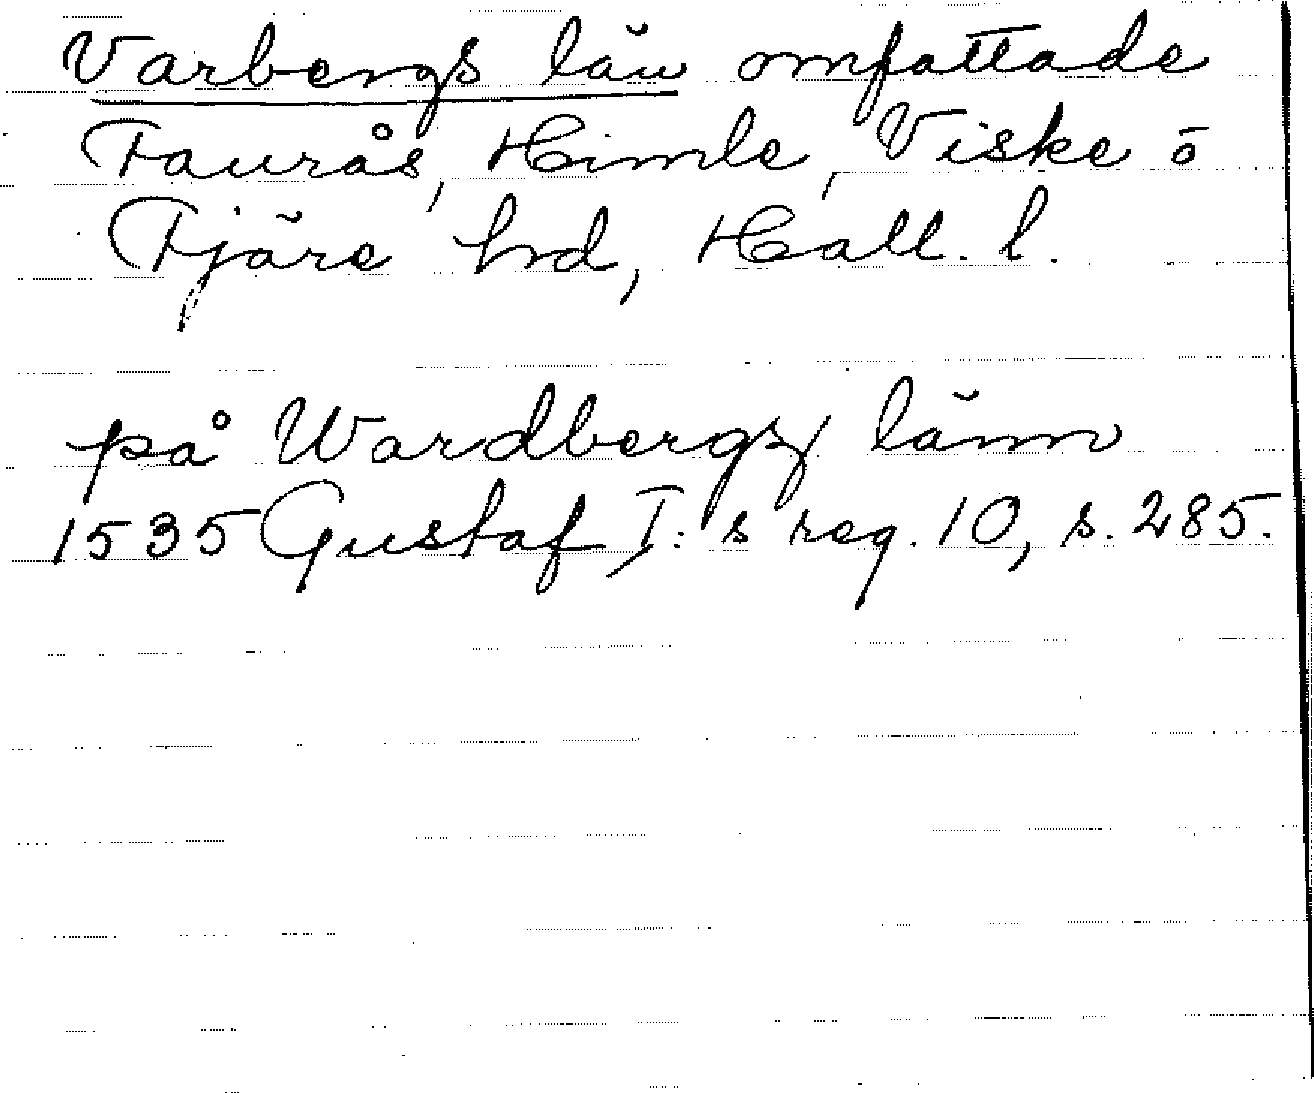 Varbergs län omfattade
Faurås, Himle, Viske o
Fjäre hrd, Hall. l.
på Wardbergs länn
1535 Gustaf I:s reg. 10, s. 285.